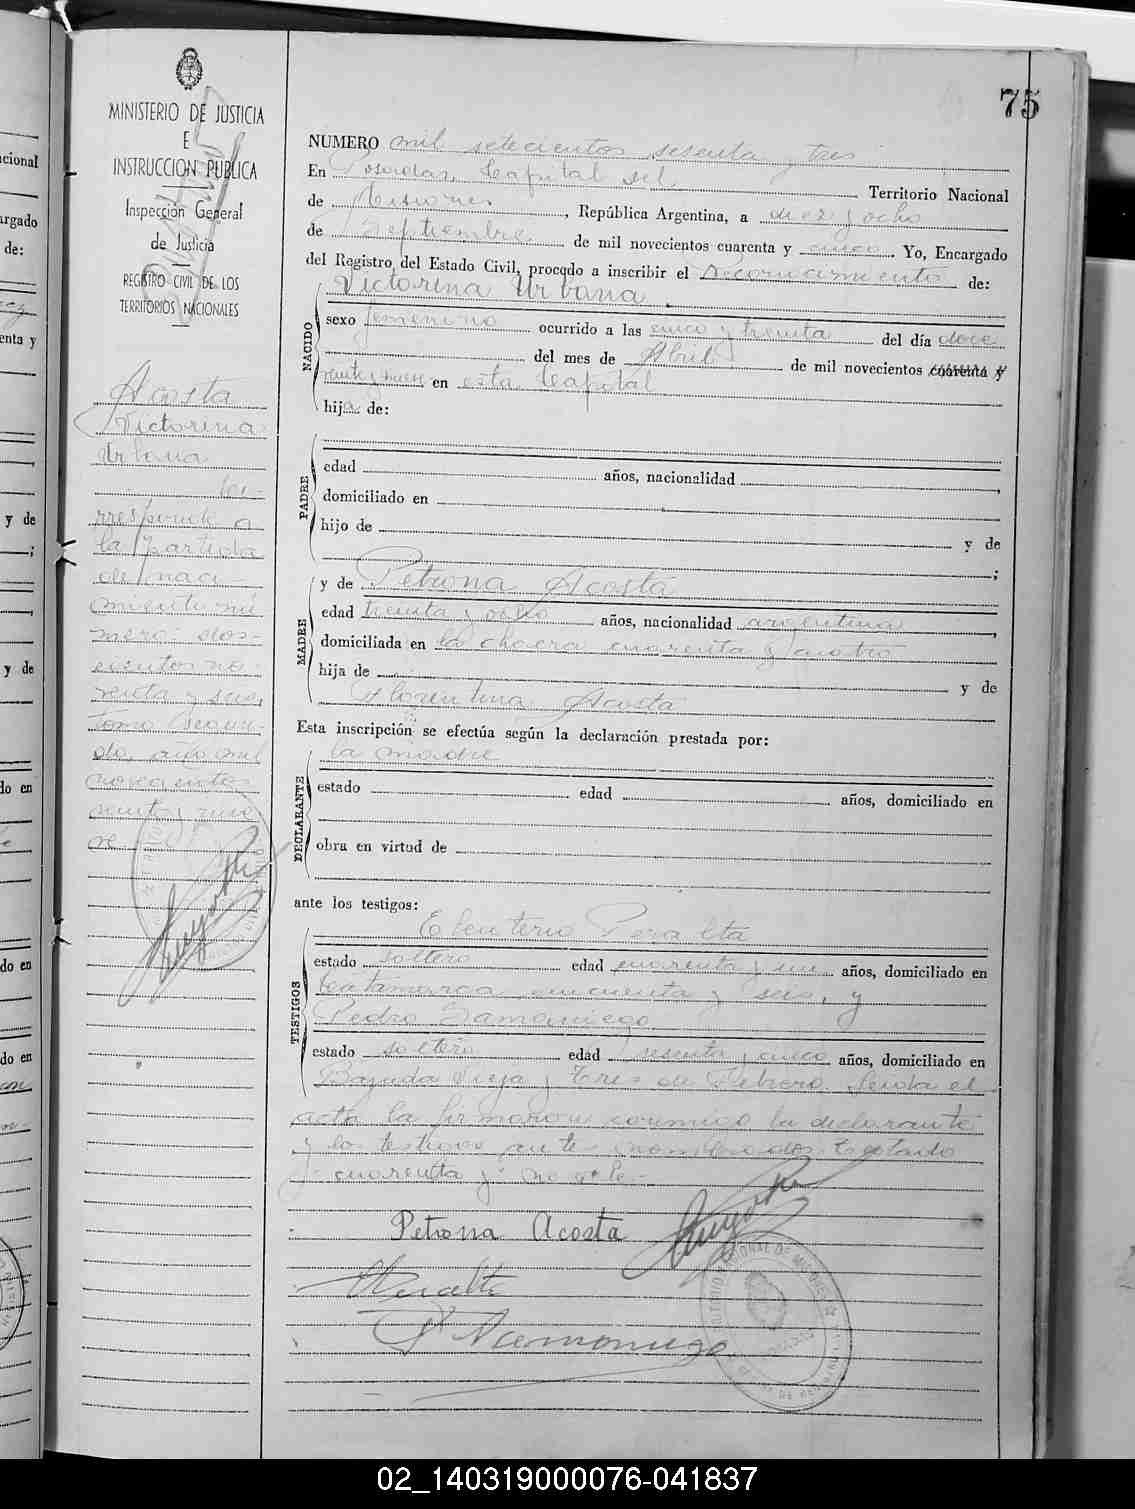 75
MINISTERIO DE JUSTICIA
E
INSTRUCCION PUBLICA
Inspección General
de Justicia
REGISTRO CIVIL DE LOS
TERRITORIOS NACIONALES
Acosta
Victorina
Urbana
Co-
rresponde a
la Partida
de naci-
miento nú
mero dos-
cientos no-
venta y seis,
tomo segun-
do, año mil
novecientos
veinte y nue
ve.
NUMERO mil setecientos sesenta y tres
En Posadas, Capital del Territorio Nacional
de Misiones, República Argentina, a diez y ocho
de Septiembre de mil novecientos cuarenta y cinco. Yo, Encargado
del Registro del Estado Civil, procedo a inscribir el Reconocimiento de:
NACIDO
Victorina Urbana
sexo femenino ocurrido a las cinco y treinta del día doce
del mes de Abril de mil novecientos cuarenta y
veinte y nueve en esta Capital
hija de:
PADRE
edad años, nacionalidad
domiciliado en
hijo de y de
;
MADRE
y de Petrona Acosta
edad treinta y ocho años, nacionalidad argentina,
domiciliada en la chacra cuarenta y cuatro
hija de y de
Florentina Acosta
Esta inscripción se efectúa según la declaración prestada por:
DECLARANTE
la madre
estado edad años, domiciliado en
obra en virtud de
ante los testigos:
TESTIGOS
Eleuterio Peralta
estado soltero edad cuarenta y un años, domiciliado en
Catamarca cincuenta y seis, y
Pedro Samaniego
estado soltero edad sesenta y cinco años, domiciliado en
Bajada Vieja y Tres de Febrero. Leída el
acta la firmaron conmigo la declarante
y los testigos antes nombrados. Testado
"cuarenta y": no vale.-
Petrona Acosta
Peralta
P Samaniego
02_140319000076-041837